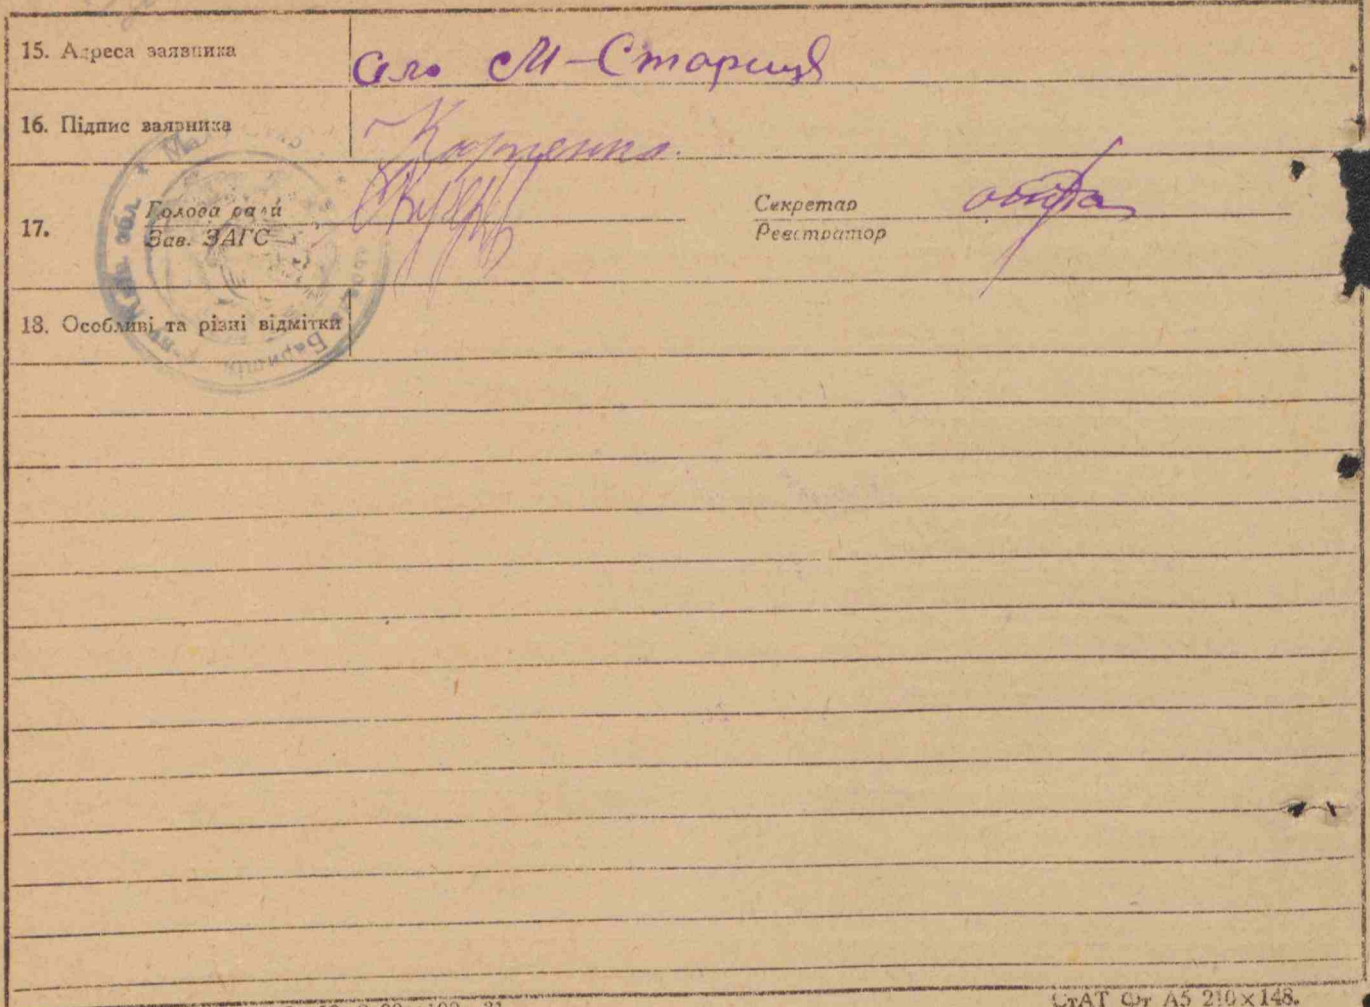 15. Адреса заявника
село М-Стариця
16. Підпис заявника
Карпенко.
17.
Голова ради
Зав. ЗАГС
Секретар
Реєстратор
18. Особливі та різні відмітки
СтАТ Фт А5 210×148.